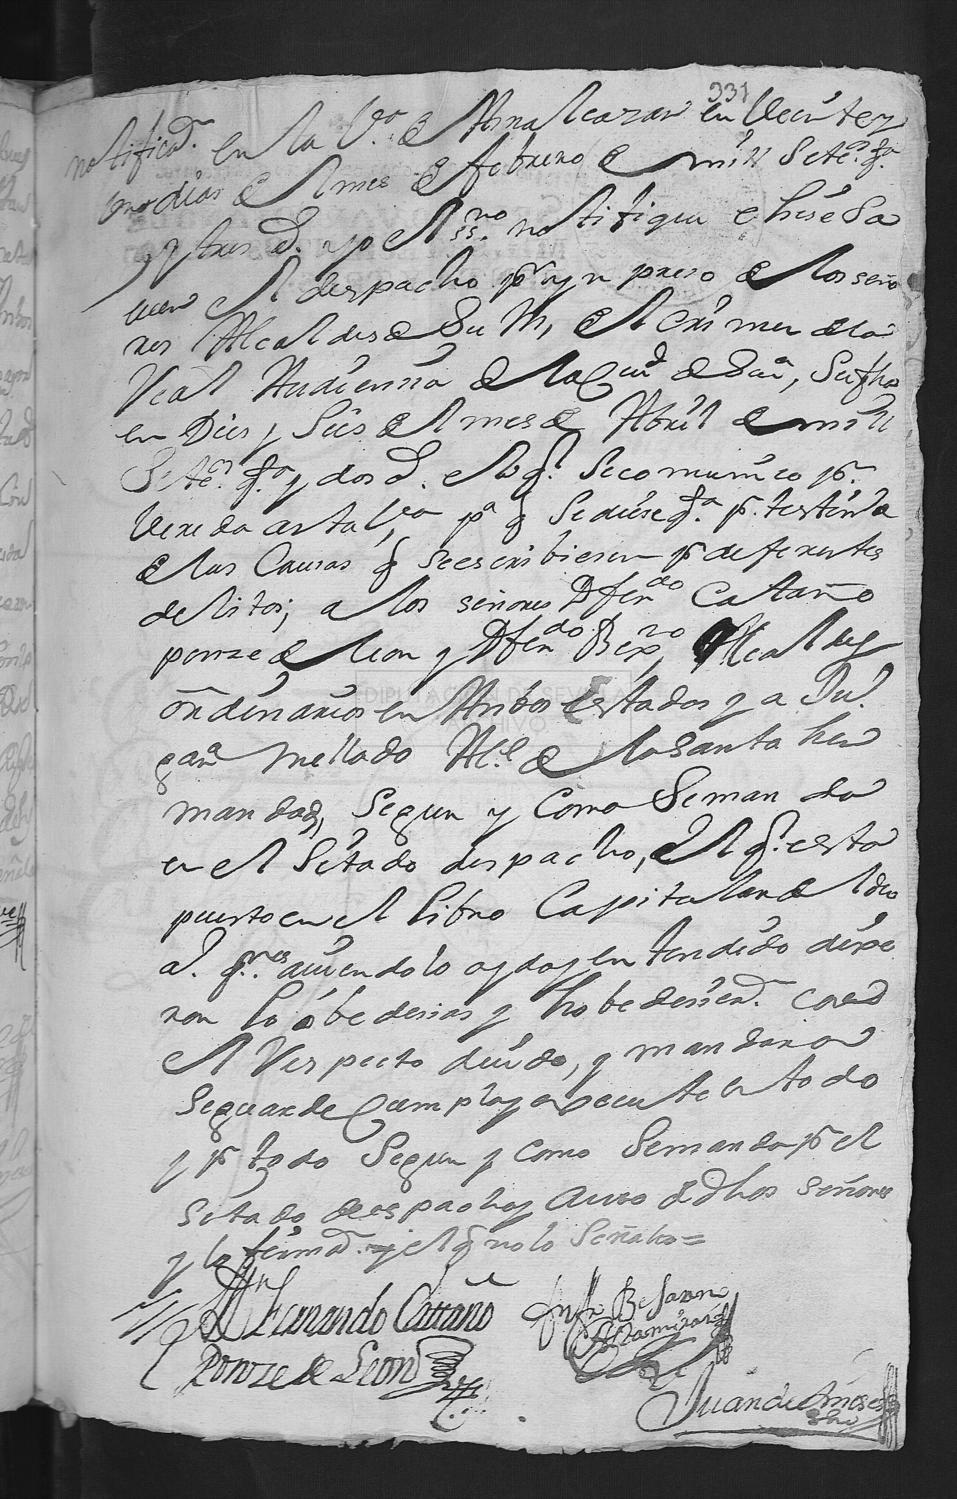 331
notificaon. en la Va. de Asnalcazar en Veinte y
uno dias de el mes de febrero de mill Setes. qta.
y tres as. yo el ssno. notifique e hise Sa
ver el despacho pr. y npreso de los seño
res Alcaldes de Su M, de el Crimen de la
Real Audiencia de la Ciud. de Sua, Su fha
en Dies y Seis de el mes de Abril de mill
Setes. qta. y dos as. el q. Se comunico pr.
Vereda a esta Va, pa. q Se diese qta. pr. testimo
de las Causas q se escribiesen pr. diferentes
delitos; a los señores Dn ferndo. Cataño
ponze de leon y Dn ferndo. Bexno, Alcaldes
ordinarios en Anbos Estados y a Jul.
garsa. mellado Alce. de la Santa her
mandad, Segun y Como Se manda
en el Sitado despacho, el q. esta
puesto en el libro Capitular de el dho
a. qnes. auiendolo oydo y entendido dixe
ron lo óbedesias y hobedesieron. con
el Respecto deuido, y mandaron
Se guarde Cumpla y execute en todo
y pr todo Segun y Como Se manda pr el
Sitado despacho y auto de dhos señores
y lo firmaon. y el q no lo Señalo =
Dn Fernando Cattaño
Ponze de Leon
Juan de